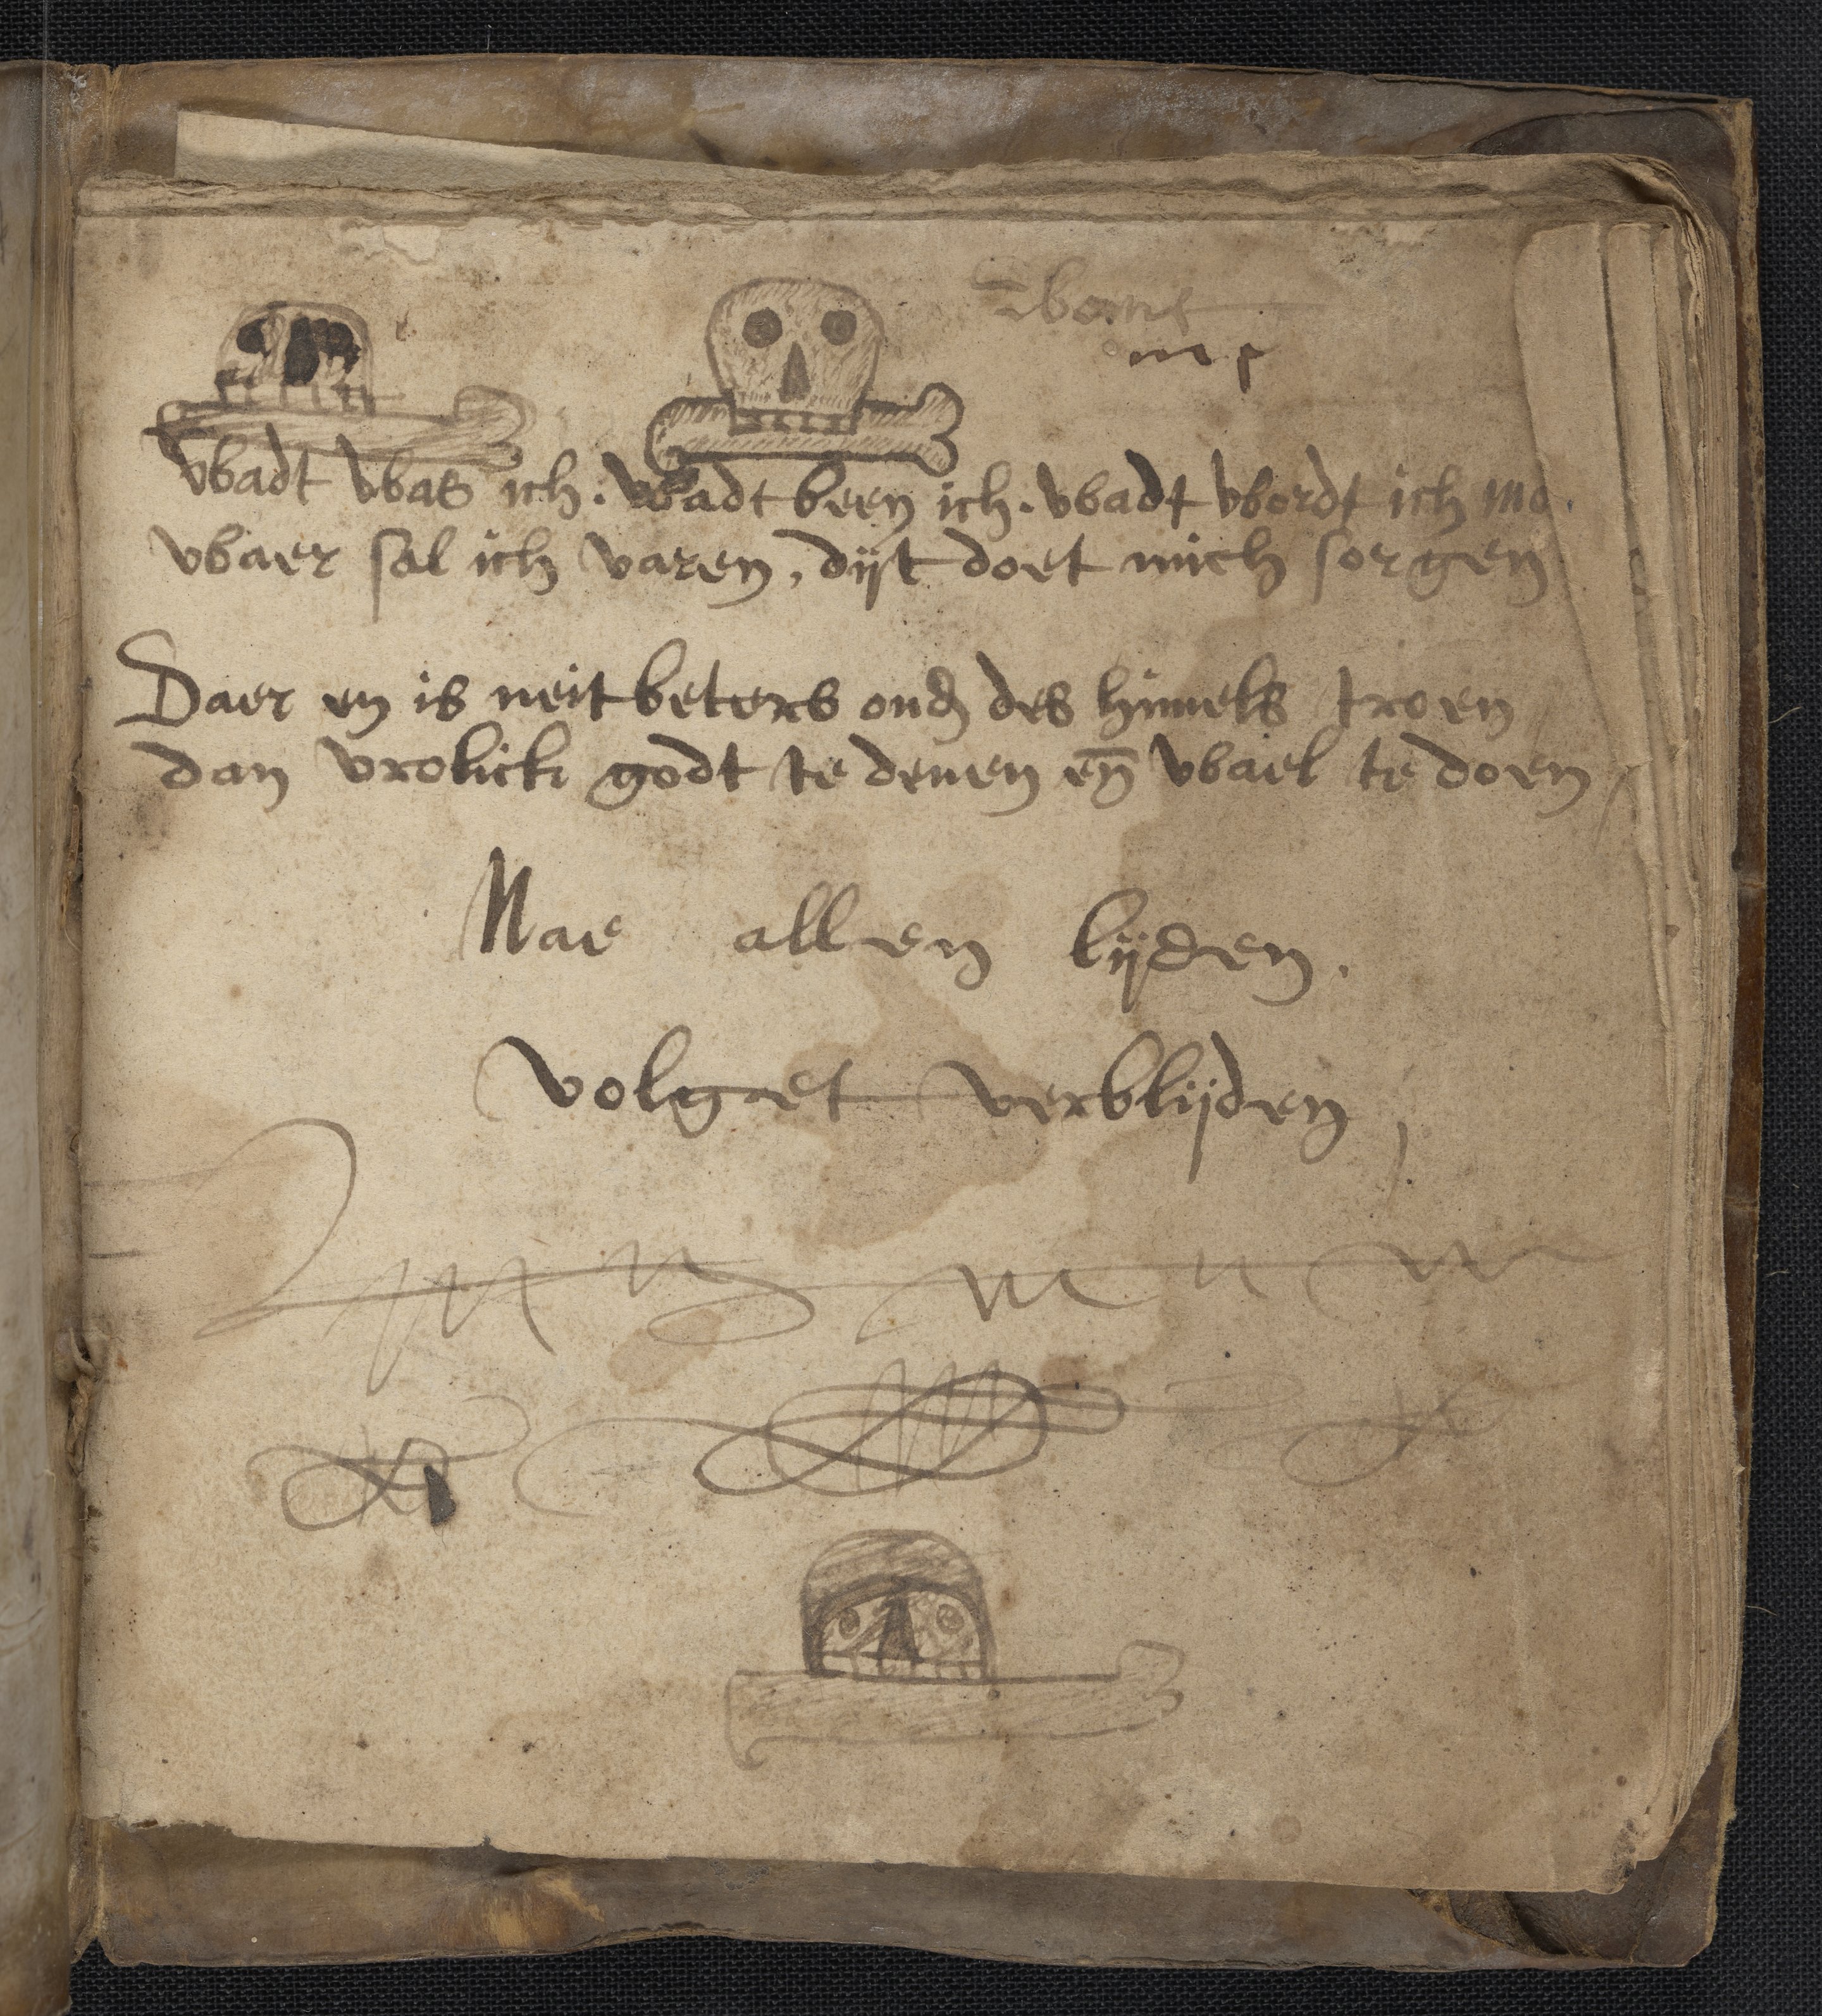 m p
wadt was ich. wadt been ich. wadt wordt ich mo.
waer sal ich varen, dijt doet mich sorgen
Daer en is neit beters ond des himels troen
dan vrolick godt te denen en̄ wael te doen
Nae allen lijden.
volget verblijden